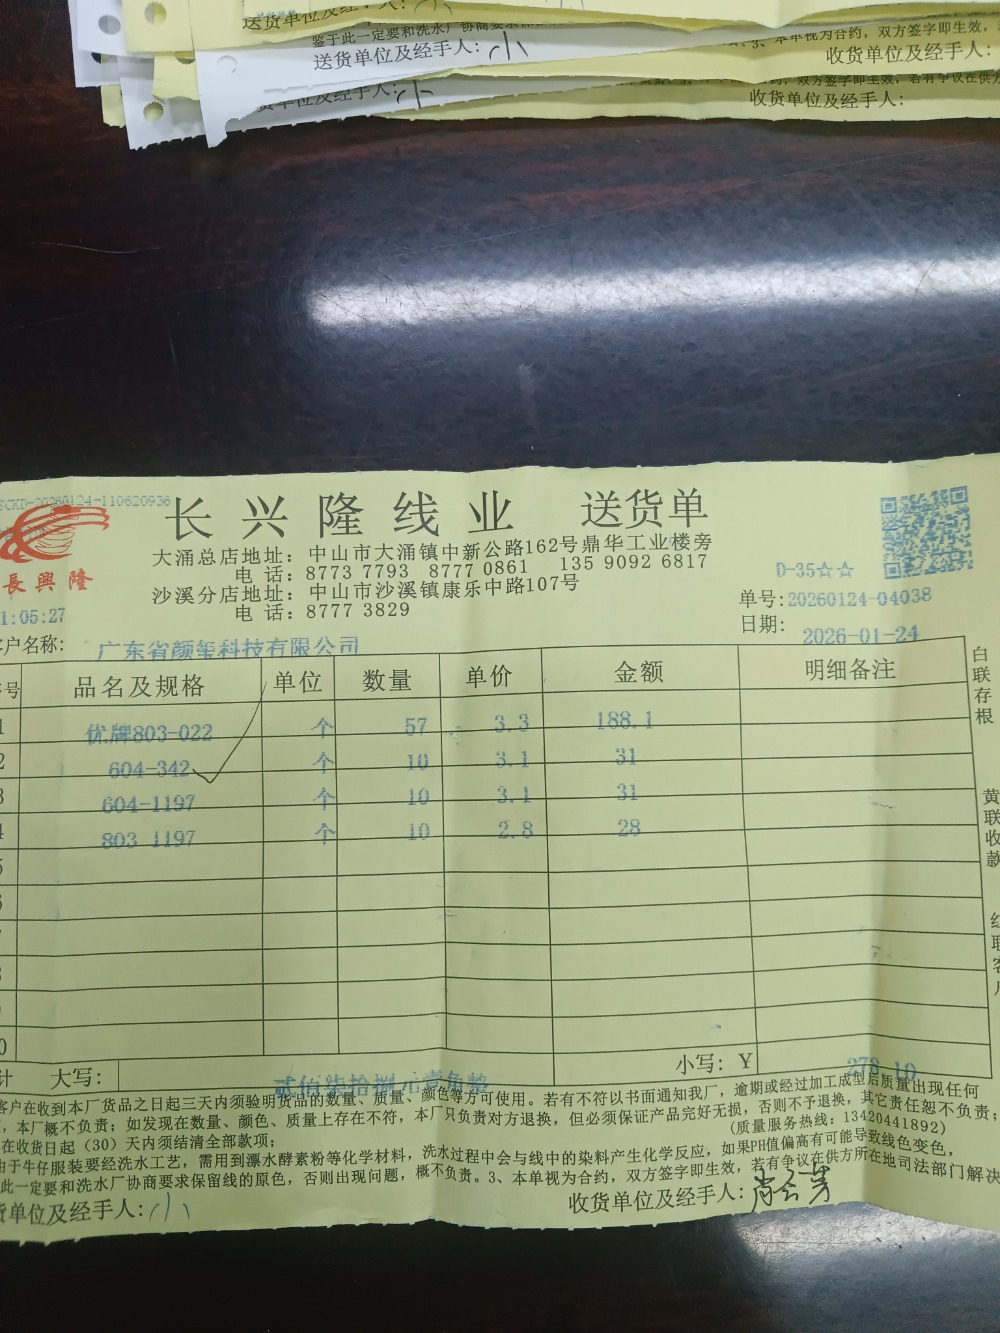 送货单位及经手人:
鉴于此一定要和洗水厂协商要求保
3、本单视为合约，双方签字即生效，
送货单位及经手人: 小
收货单位及经手人:
双方签字即生效，若有争议在供方
货单位及经手人: 小
收货单位及经手人:
SCKD-20260124-110620936
长兴隆线业 送货单
大涌总店地址：中山市大涌镇中新公路162号鼎华工业楼旁
电 话：8773 7793 8777 0861 135 9092 6817
沙溪分店地址：中山市沙溪镇康乐中路107号
电 话：8777 3829
長興隆
D-35☆☆
1:05:27
单号:20260124-04038
日期: 2026-01-24
客户名称: 广东省颜玺科技有限公司
序号 品名及规格 单位 数量 单价 金额 明细备注
1 优牌803-022 个 57 3.3 188.1
2 604-342 个 10 3.1 31
3 604-1197 个 10 3.1 31
4 803 1197 个 10 2.8 28
5
6
7
8
9
0
计 大写: 贰佰柒拾捌元壹角整 小写: Y 278.10
白联存根
黄联收款
红联客户
客户在收到本厂货品之日起三天内须验明货品的数量、质量、颜色等方可使用。若有不符以书面通知我厂，逾期或经过加工成型后质量出现任何
，本厂概不负责；如发现在数量、颜色、质量上存在不符，本厂只负责对方退换，但必须保证产品完好无损，否则不予退换，其它责任恕不负责；
在收货日起（30）天内须结清全部款项；
(质量服务热线：13420441892)
由于牛仔服装要经洗水工艺，需用到漂水酵素粉等化学材料，洗水过程中会与线中的染料产生化学反应，如果PH值偏高有可能导致线色变色，
此一定要和洗水厂协商要求保留线的原色，否则出现问题，概不负责。3、本单视为合约，双方签字即生效，若有争议在供方所在地司法部门解决
货单位及经手人: 小
收货单位及经手人: